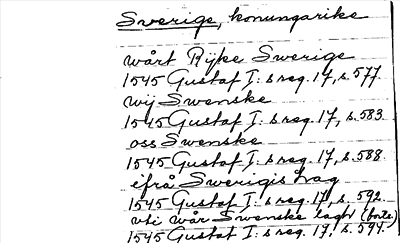 Sverige, konungarike
wårt Rijke Swerige
1545 Gustaf I:s reg. 17, s. 577
wij Swenske
1545 Gustaf I:s reg. 17, s. 583
oss Swenske
1545 Gustaf I:s reg. 17, s. 588
ifrå Swerigis Lag
1545 Gustaf I:s reg. 17, s. 592
uti wår Swenske lagh
1545 Gustaf I:s reg. 17, s. 594.